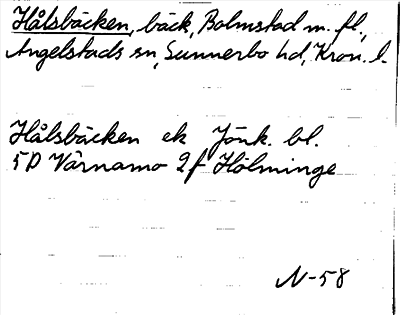 Hålsbäcken, bäck, Bolmstad m. fl.,
Angelstads sn, Sunnerbo hd, Kron. l.
Hålsbäcken ek Jönk. bl.
5D Värnamo 2f Hölminge
N-58